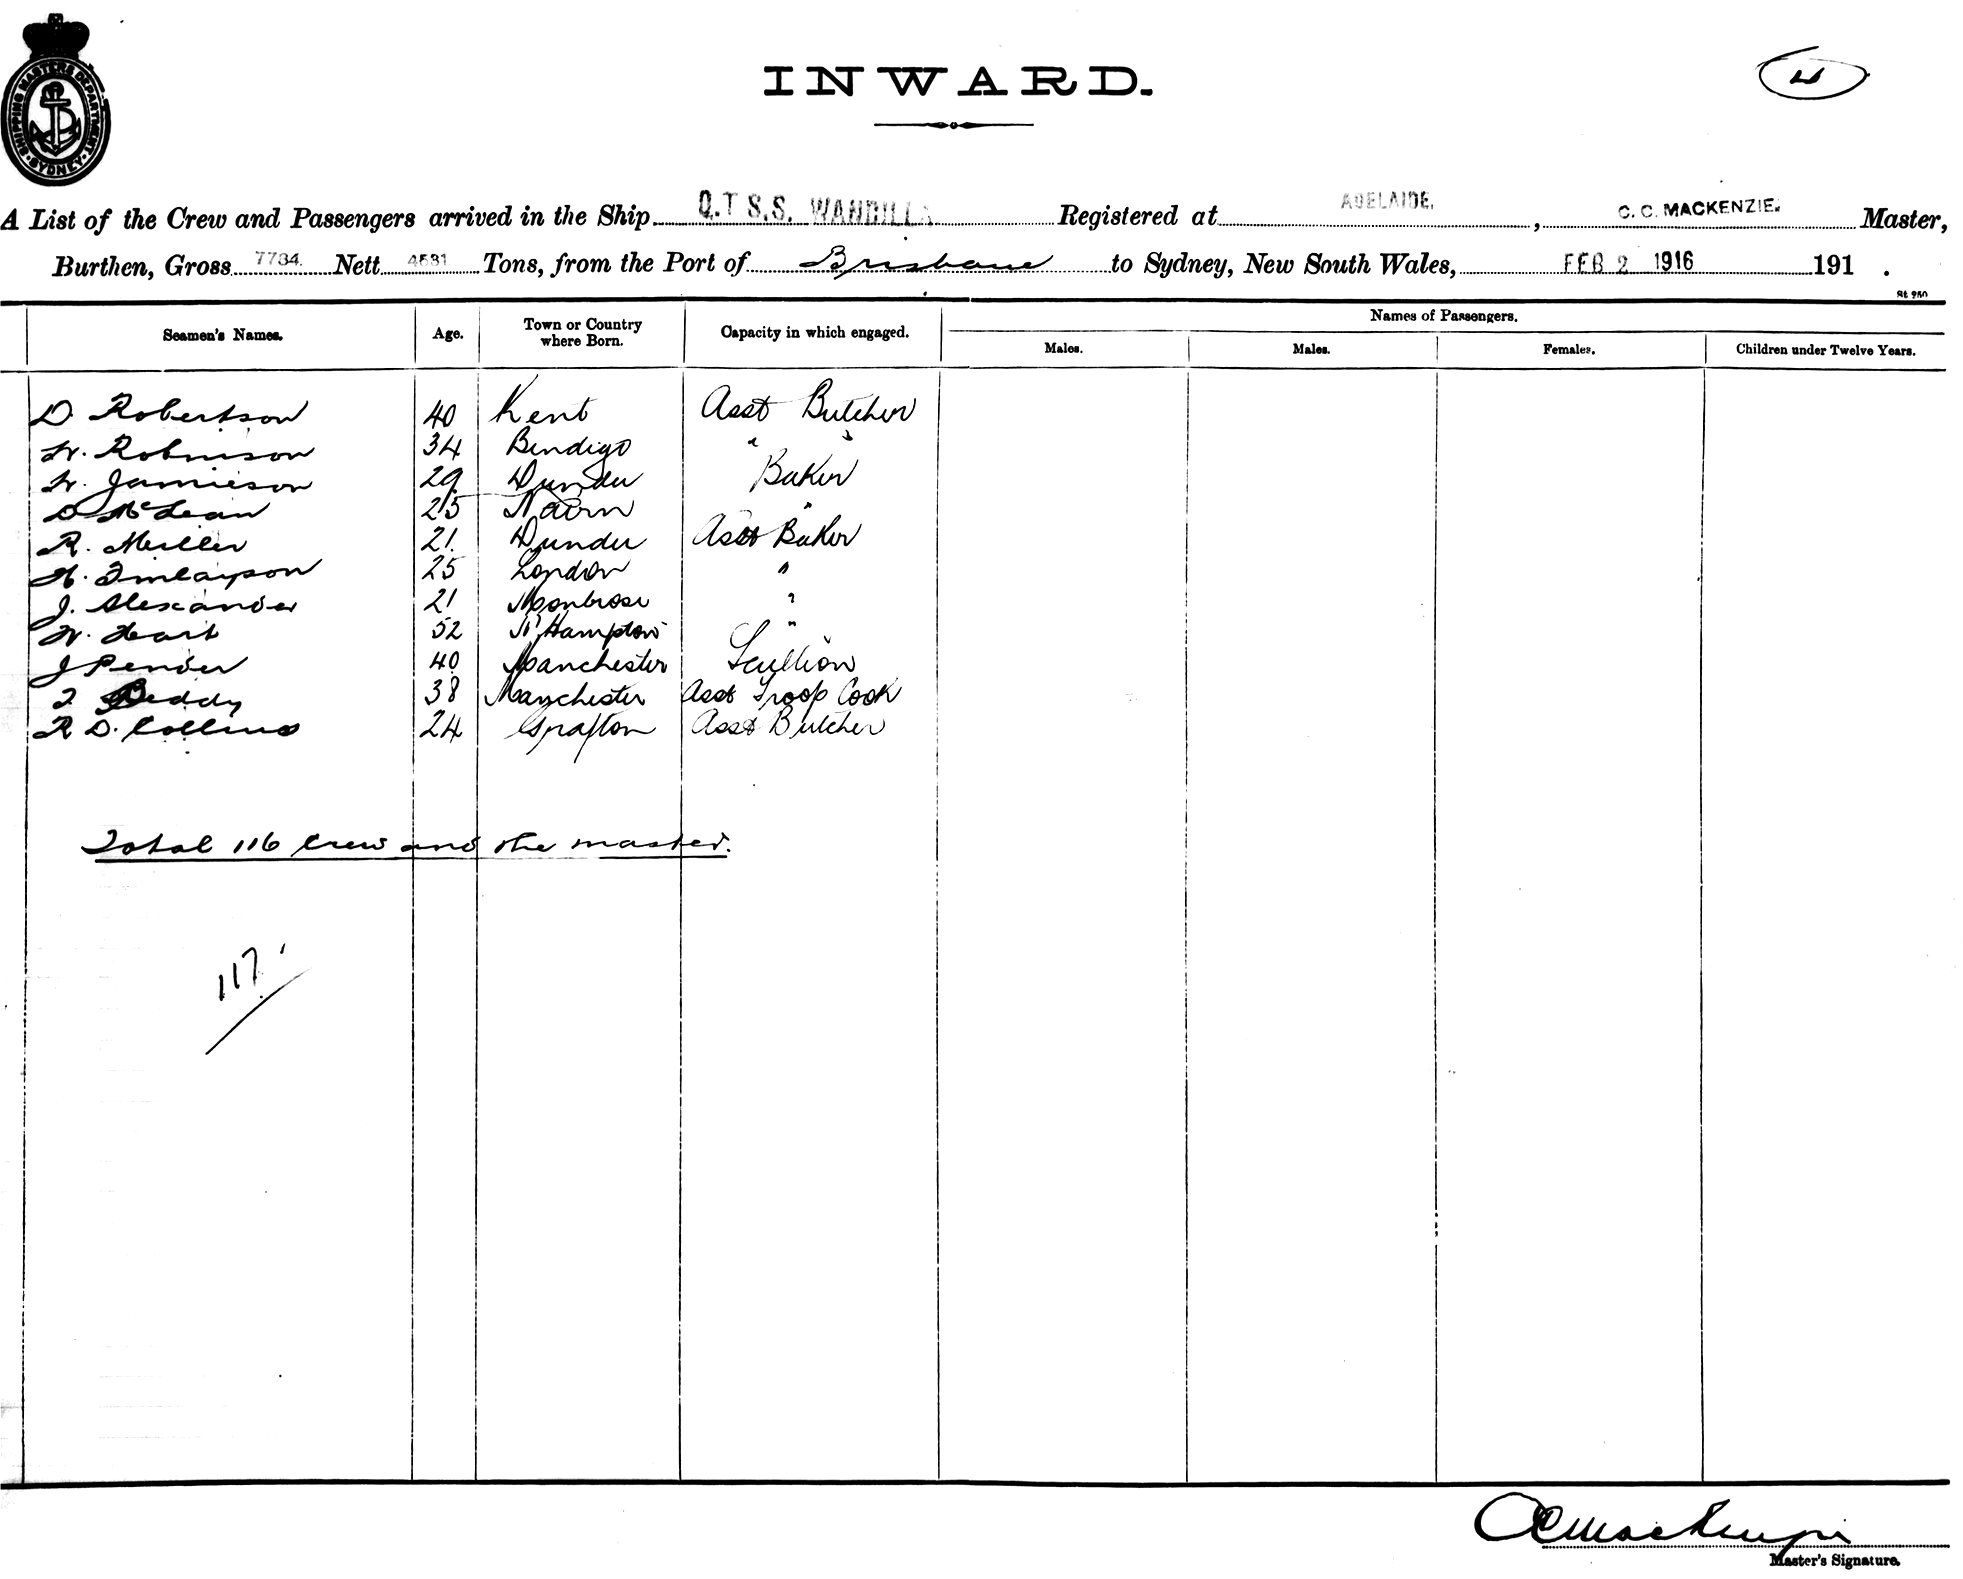 SHIPPING MASTERS DEPARTMENT · SYDNEY ·
INWARD.
4
A List of the Crew and Passengers arrived in the Ship Q.T S.S. WANDILLA Registered at ADELAIDE. , C. C. MACKENZIE. Master,
Burthen, Gross 7734. Nett 4531 Tons, from the Port of Brisbane to Sydney, New South Wales, FEB 2 1916 191 .
St 250
Seamen's Names. Age. Town or Country where Born. Capacity in which engaged. Names of Passengers.
Males. Males. Females. Children under Twelve Years.
D. Robertson 40 Kent Asst Butcher
W. Robinson 34 Bendigo " "
W. Jamieson 29 Dundee Baker
D McLean 25 Nairn "
R. Miller 21 Dundee Asst Baker
A. Finlayson 25 London "
J. Alexander 21 Monbrose "
W. Hart 52 N'Hampton "
J Pender 40 Manchester Scullion
T Reddy 38 Manchester Asst Troop Cook
R D. Collins 24 Grafton Asst Butcher
Total 116 crew and the master.
117.
CC MacKenzie
Master's Signature.